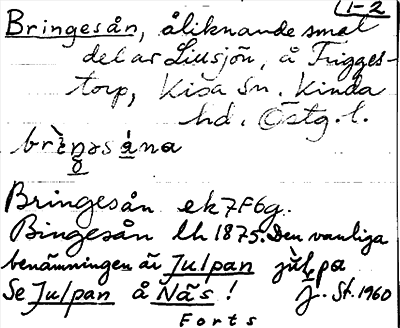 1-2
Bringesån, åliknande smal
del av Lillsjön, å Trigges-
torp, Kisa sn. Kinda
hd. Östg. l.
Bringesån ek 7F6g.
Bingesån lh 1875. Den vanliga
benämningen är Julpan
Se Julpan å Näs! J. St. 1960
Forts